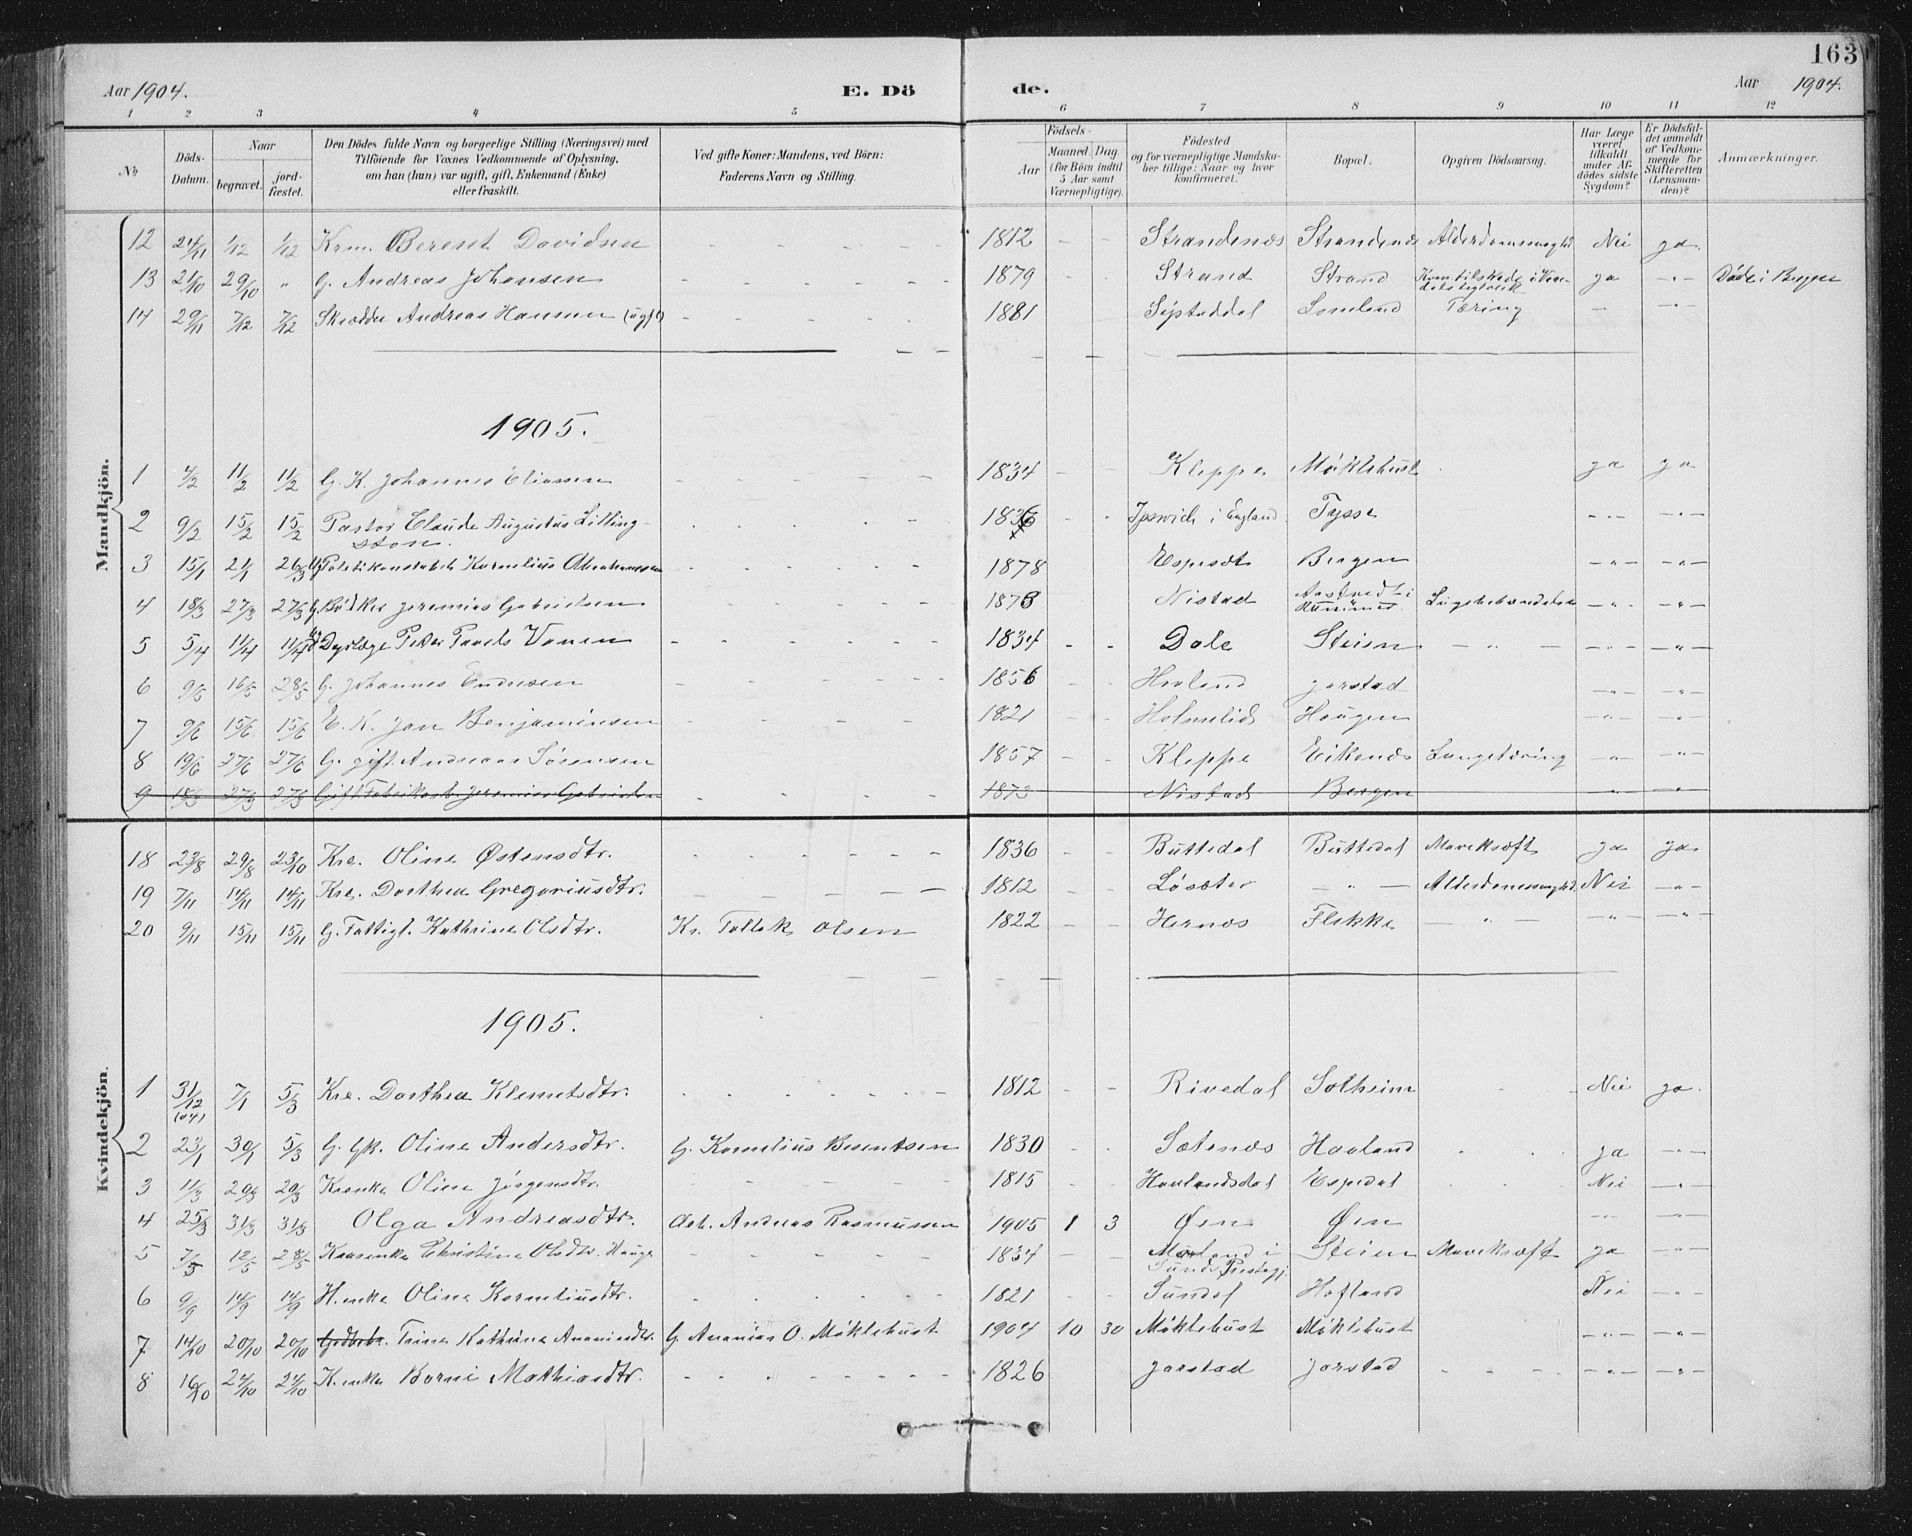 163
Aar 1904. E. Dö de. Aar 1904.
1 2 3 4 5 6 7 8 9 10 11 12
No Döds-Datum. Naar begravet. jord-fæstet. Den Dödes fulde Navn og borgerlige Stilling (Næringsvei) med Tilföiende for Voxnes Vedkommende af Oplysning, om han (hun) var ugift, gift, Enkemand (Enke) eller fraskilt. Ved gifte Koner: Mandens, ved Börn: Faderens Navn og Stilling. Födsels- Aar Maaned. Dag. (for Börn indtil 5 Aar samt Værnepligtige). Födested og for værnepligtige Mandska-ber tillige: Naar og hvor konfirmeret. Bopæl. Opgiven Dödsaarsag. Har Læge været tilkaldt under Af-dödes sidste Sygdom? Er Dödsfal-det anmeldt af Vedkom-mende for Skifteretten (Lensman-den)? Anmærkninger.
Mandkjön.
12 24/11 1/12 1/12 Krm. Berent Davidsen - - - - 1812 - - Strandenæs Strandenæs Alderdomssvaghed Nei ja
13 21/10 29/10 " G. Andreas Johansen - - - - 1879 - - Strand Strand ja - " - Døde i Bergen
14 29/11 7/12 7/12 Skrædder Andreas Hansen (ugift) - - - - 1881 Lomland Tæring - - " -
1905.
1 4/2 11/2 11/2 G. K. Johannes Eliassen - - - - 1834 - - Kleppe Møklebust ja ja
2 9/2 15/2 15/2 Pastor Claude Augustus Lilling-
ston. 1836 - - Ipswich i England Tysse - " - - " -
3 15/1 21/1 26/3 Politikonstabel Kornelius Abrahamsen 1878 Espedt Bergen - " - - " -
4 18/3 27/3 27/3 G. Bødker Jeremias Gabrielsen 1873 Nistad - " - - " -
5 5/4 11/4 11/4 Dyrlæge Peter Vonen 1834 - - Dale Steien - " - - " - - " -
6 9/5 16/5 28/5 G. Johannes Endresen 1856 Hovland Jarstad - " - - " -
7 9/6 15/6 15/6 E. K. Jan Benjaminsen 1821 - - Holmelid Haugen - " - - " -
8 19/6 27/6 27/6 G. gift Andreas Sørensen 1857 - - Kleppe Eikenæs Lungetæring - " - - " -
9 18/3 27/3 27/3 Gift Fabrikarb. Jeremias Gabrielsen 1873 Nistad Bergen - " - - " -
Kvindekjön.
18 23/8 29/8 23/10 Kre. Oline Østensdtr. - - - - 1836 - - Buttedal Buttedal Mavekræft ja ja
19 7/11 14/11 14/11 Kre. Dorthea Gregoriusdtr. - - - - 1812 - - Løsæter - " - Alderdomssvaghed. Nei - " -
20 9/11 15/11 15/11 G. Fattigl. Kathrine Olsdtr. Kr. Tollak Olsen 1822 - - Hernæs Flekke - " - - " - - " -
1905.
1 31/12 (04) 7/1 5/3 Kre. Dorthea Klemetsdtr. 1812 - - Rivedal Solheim Nei ja
2 23/1 30/1 5/3 G. Gk. Oline Andersdtr. G. Kornelius Berentsen 1830 Sætenæs Hovland ja - " -
3 11/3 20/3 20/3 Krenke Oline Jørgensdtr. 1815 Hovlandsdal Espedal Nei - " -
4 25/3 31/3 31/3 Olga Andreasdtr. Arb. Andreas Rasmussen 1905 1 3 Øen Øen - " - - " -
5 7/5 12/5 28/5 Kaarenke Christine Olsdtr. Hauge 1834 - - i Sunds Prestegj. Steien Mavekræft ja - " -
6 9/9 14/9 14/9 Henke Oline Korneliusdtr. 1821 - - Sundel Hofland Nei - " -
7 14/10 20/10 20/10 Trine Kathrine Ananiasdtr. G. Ananias O. Møklebust 1904 10 30 Møklebust Møklebust - " - - " -
8 16/10 24/10 24/10 Kenke Borni Mathiasdtr. 1826 Jarstad Jarstad - " - - " -